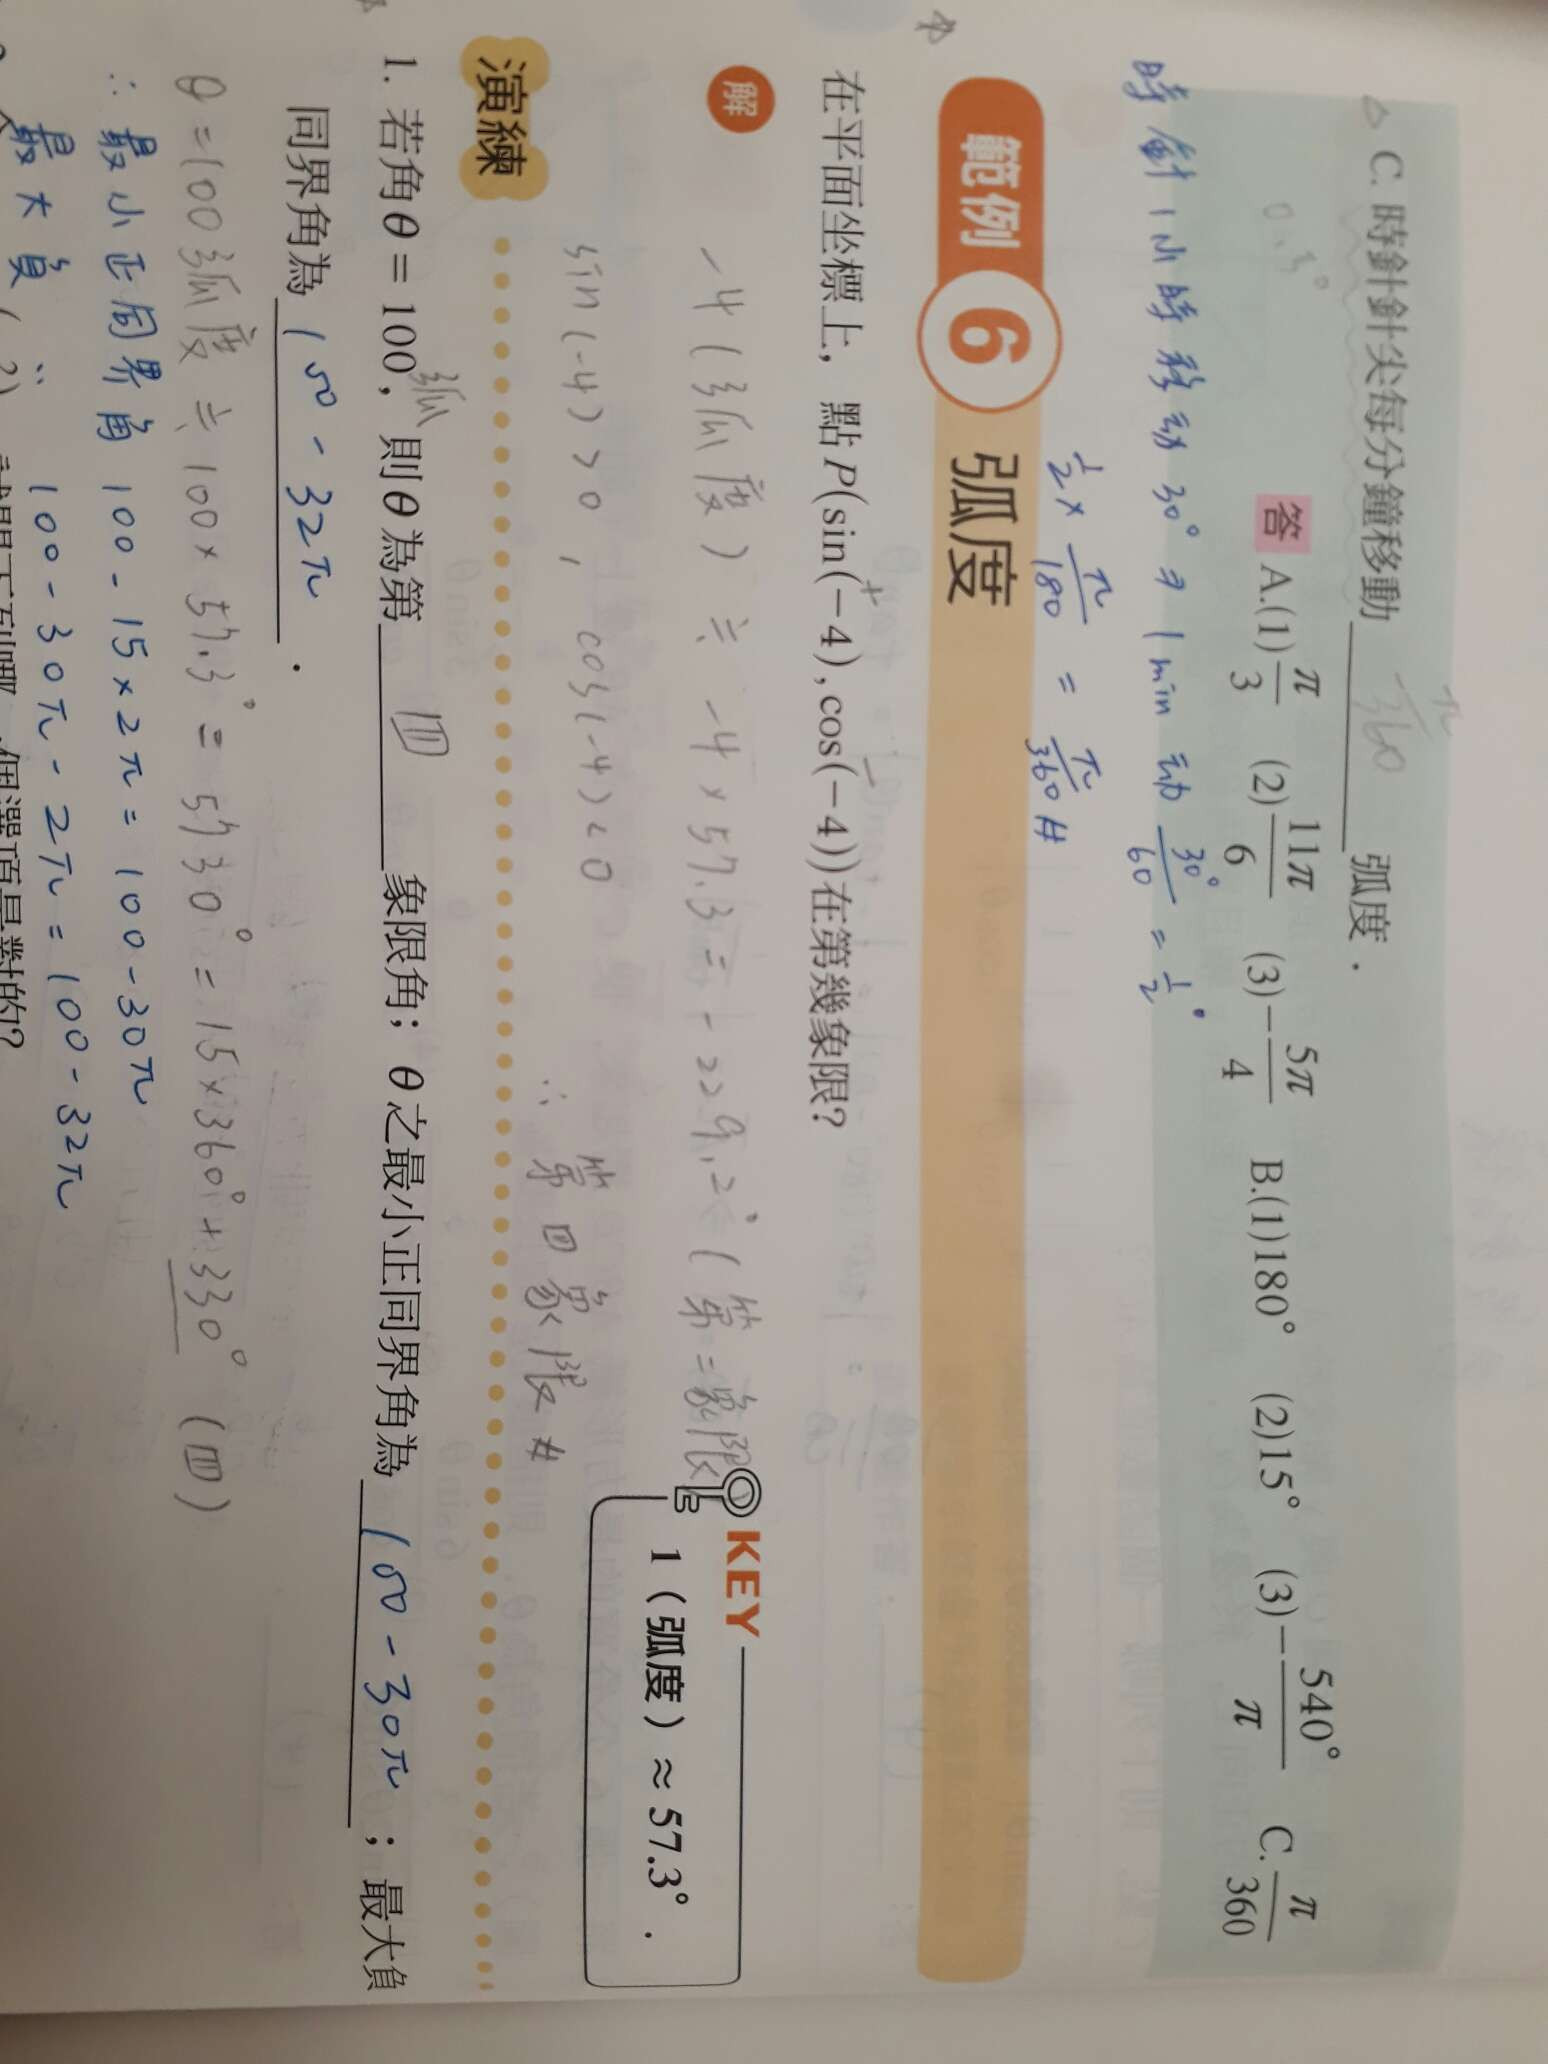 C. 時針針尖每分鐘移動 π/360 弧度．
0.5°
答 A.(1) π/3 (2) 11π/6 (3) −5π/4 B.(1)180° (2)15° (3) −540°/π C. π/360
時針1小時移动30° ⇒ 1min 动 30°/60 = 1/2°
1/2 × π/180 = π/360 #
範例 6 弧度
在平面坐標上，點P(sin(−4), cos(−4))在第幾象限?
+ −
解 −4(弧度) ≒ −4×57.3 = −229.2° (第二象限)
sin(-4)>0 , cos(-4)<0 ∴ 第四象限 #
KEY
1（弧度）≈ 57.3°．
演練
弧
1. 若角θ = 100，則θ為第 四 象限角；θ之最小正同界角為 100 - 30π ；最大負
同界角為 100 - 32π ．
θ = 100弧度 ≒ 100×57.3° = 5730° = 15×360°+330° (四)
∴ 最小正同界角 100-15×2π = 100-30π
最大負 〃 100-30π-2π = 100-32π
個選項是對的?